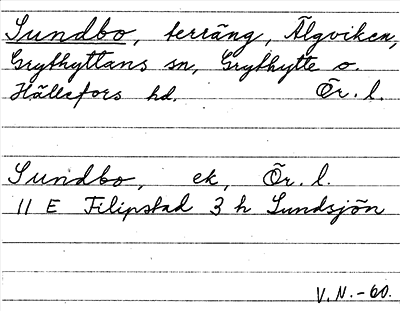 Sundbo, terräng, Älgviken,
Grythyttans sn, Grythytte o.
Hällefors hd. Ör. l.
Sundbo, ek, Ör. l.
11 E Filipstad 3 h Sundsjön
V. N. -60.